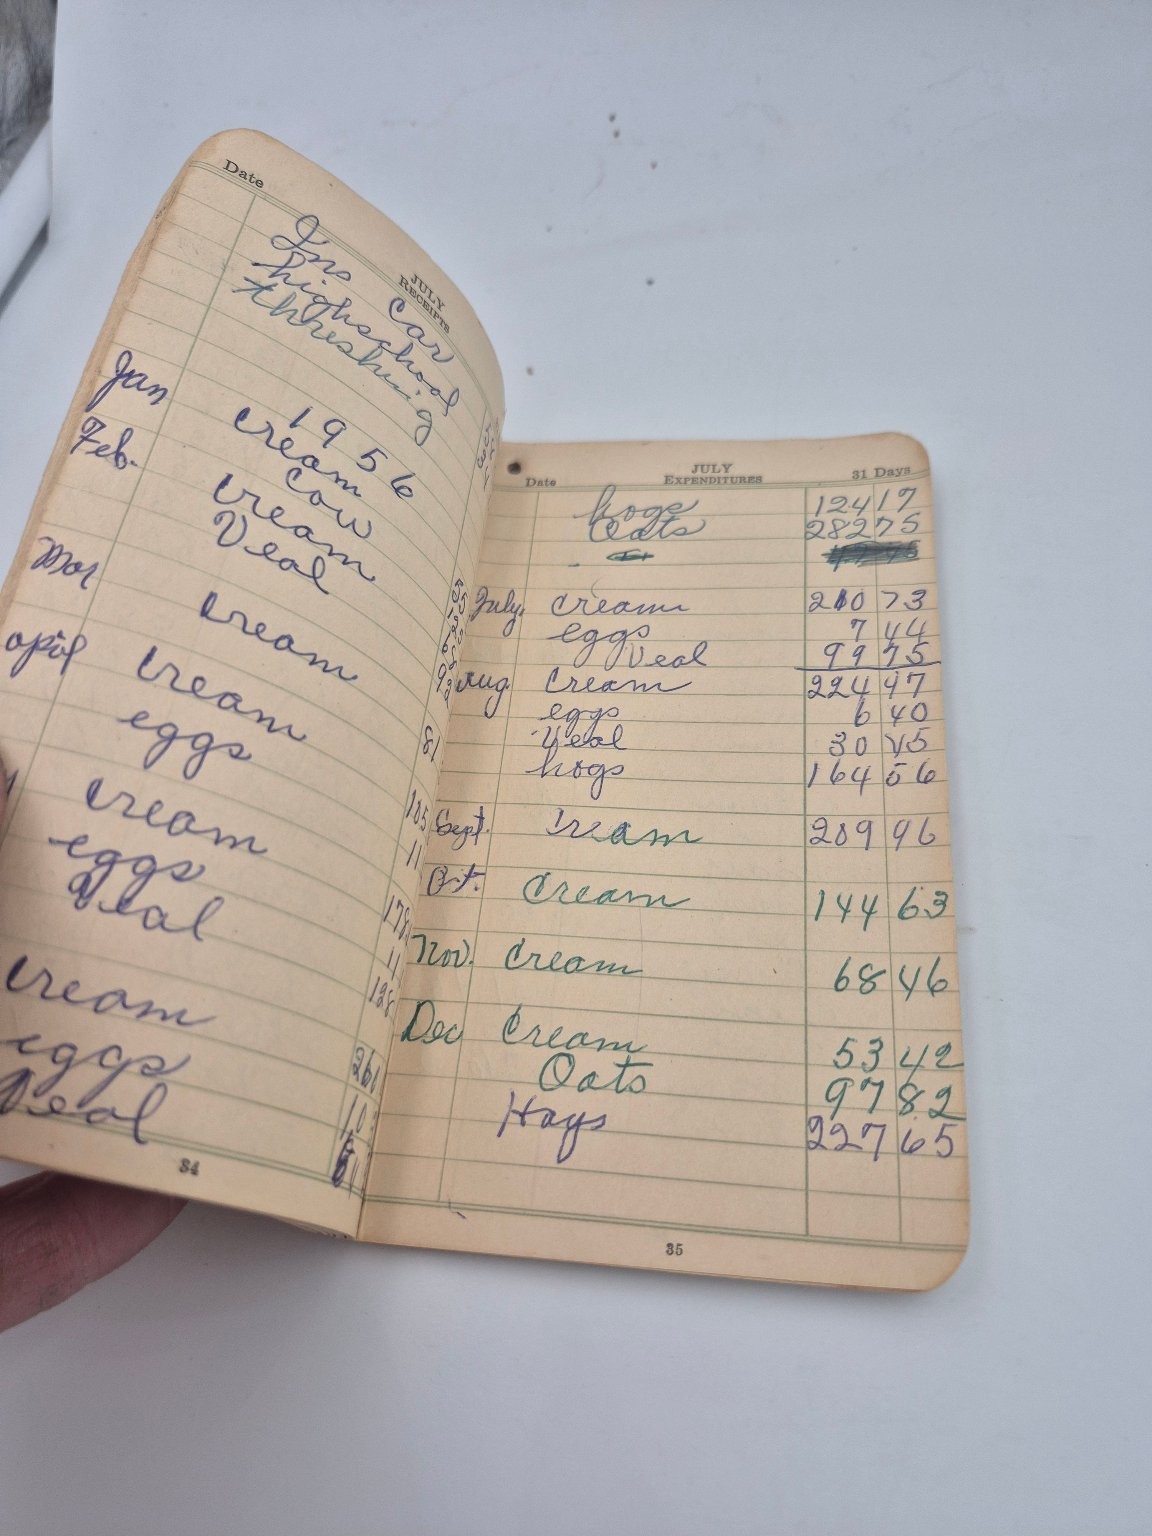 Date
JULY
RECEIPTS
Ins Car
highschool
threshing
1956
Jan cream
Cow
Feb. cream
Veal
Mar cream
april cream 81
eggs
cream 105
eggs 11
Veal 178
cream
eggs
Veal
34
Date JULY 31 Days
EXPENDITURES
hogs 124 17
Oats 282 75
July cream 210 73
eggs 7 44
Veal 99 75
Aug. cream 224 47
eggs 6 40
Veal 30 45
hogs 164 56
Sept. cream 209 96
Oct. cream 144 63
Nov. cream 68 46
Dec cream 53 42
Oats 97 82
Hogs 227 65
35